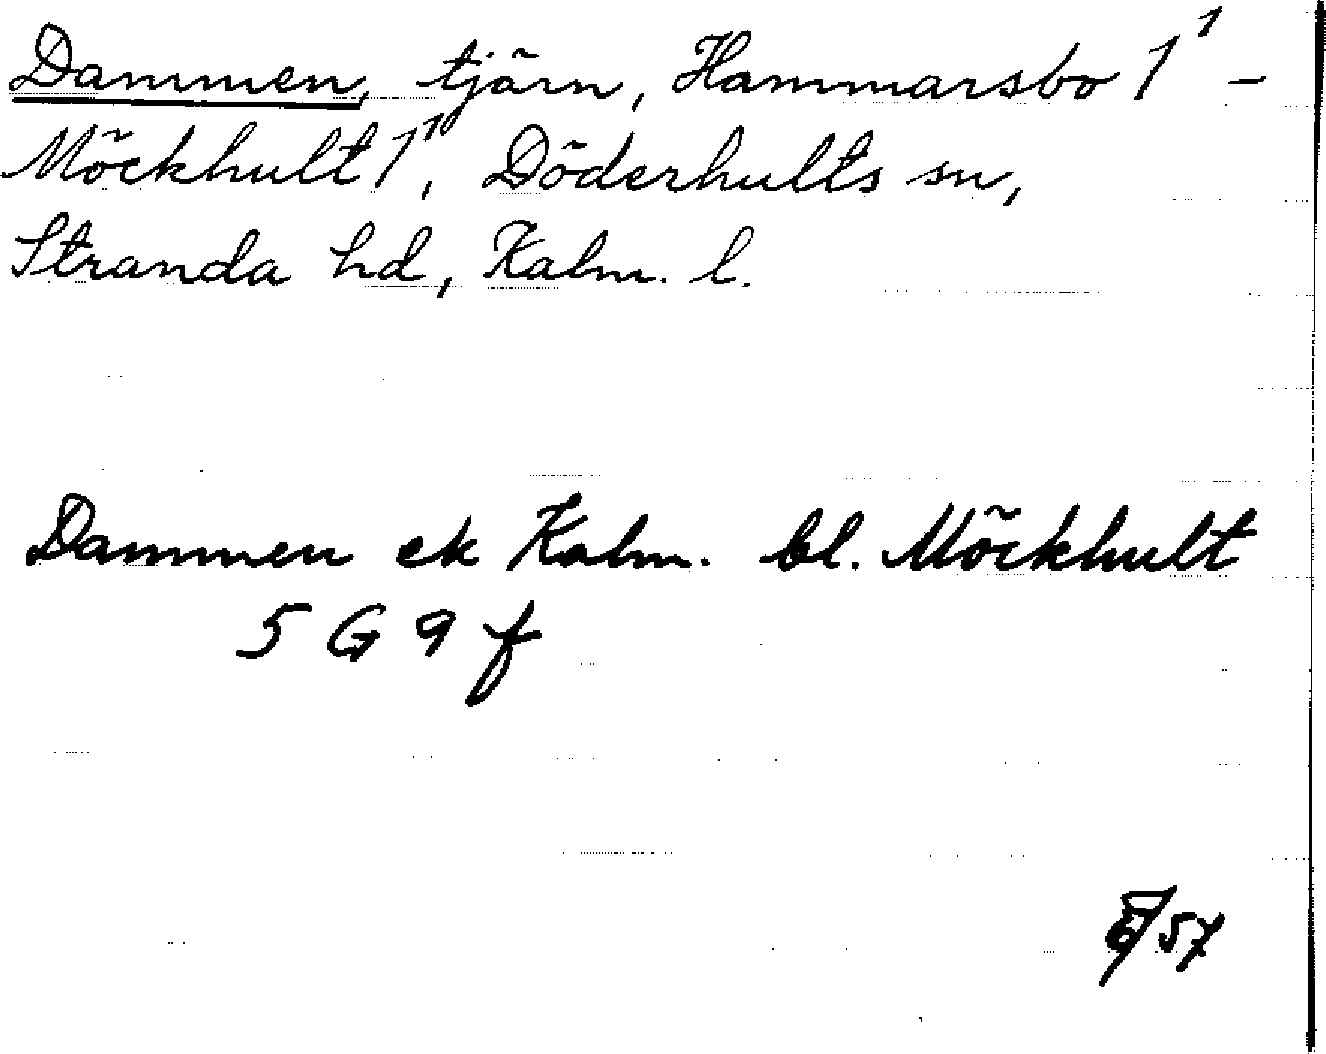 Dammen, tjärn, Hammarsbo 1¹ –
Möckhult 1¹, Döderhults sn,
Stranda hd, Kalm. l.
Dammen ek Kalm. bl. Möckhult
5 G 9 f
57